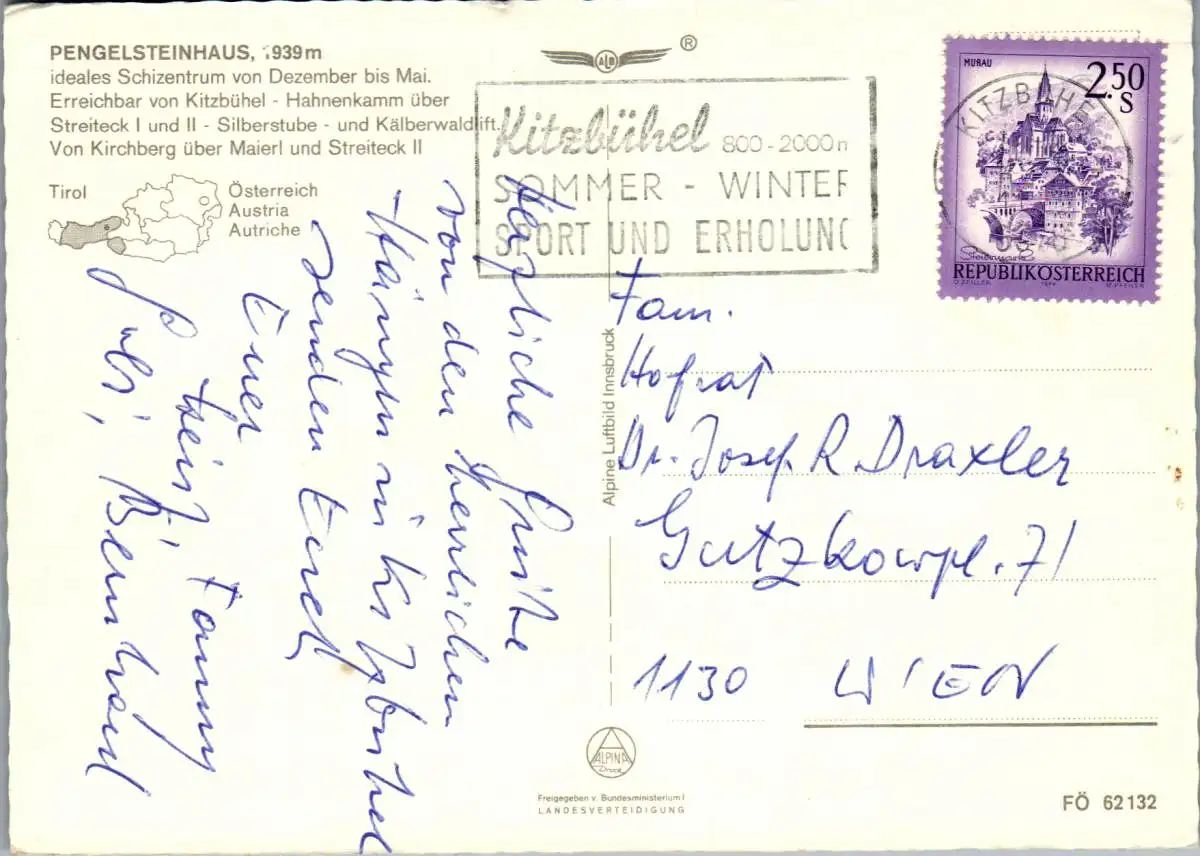 PENGELSTEINHAUS, 1939 m
ideales Schizentrum von Dezember bis Mai.
Erreichbar von Kitzbühel - Hahnenkamm über
Streiteck I und II - Silberstube - und Kälberwaldlift.
Von Kirchberg über Maierl und Streiteck II
Tirol
Österreich
Austria
Autriche
ALB
®
Kitzbühel 800-2000m
SOMMER - WINTER
SPORT UND ERHOLUNG
KITZBÜHEL
MURAU
2.50
S
Steiermark
REPUBLIK ÖSTERREICH
Herzliche Grüße
von den herrlichen
Hängen in Kitzbühel
senden Euch
Euer
Heinz, Fanny
Gabi, Bernhard
Alpine Luftbild Innsbruck
Fam.
Hofrat
Dr. Josef R. Draxler
Gutzkowpl. 71
1130 WIEN
ALPINA
Druck
Freigegeben v. Bundesministerium f.
LANDESVERTEIDIGUNG
FÖ 62132